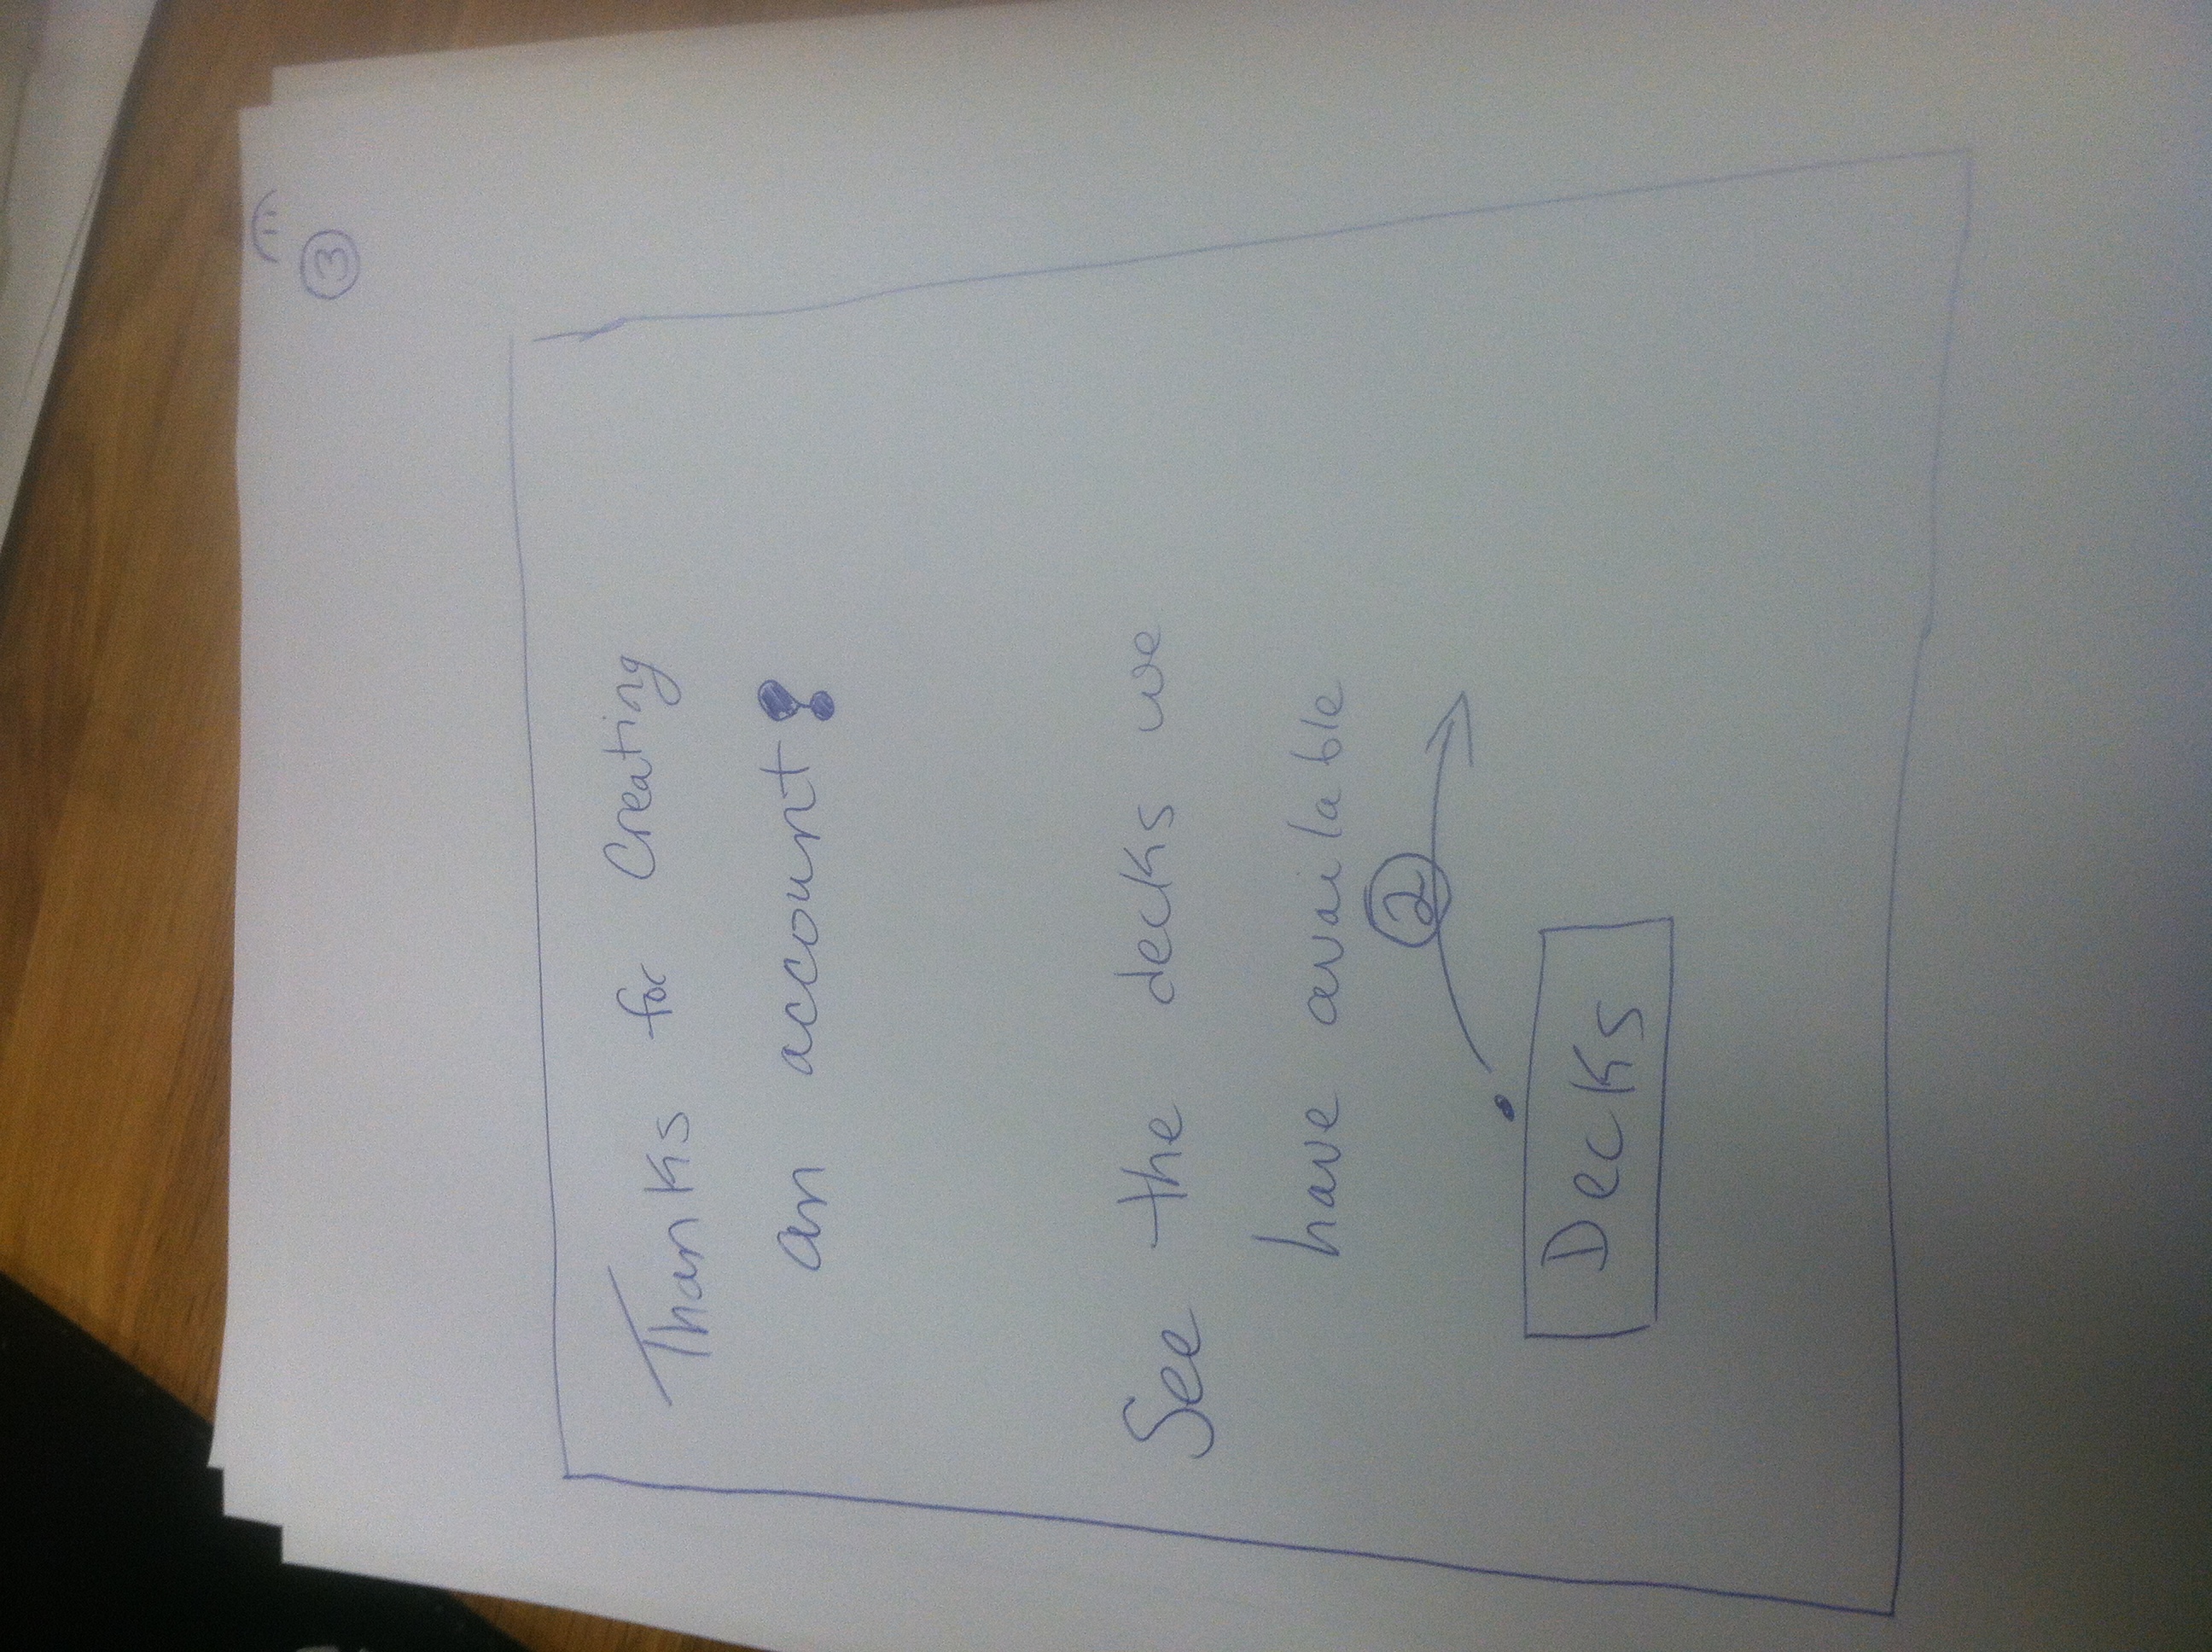 3
Thanks for Creating
an account!
See the decks we
have available
2
Decks